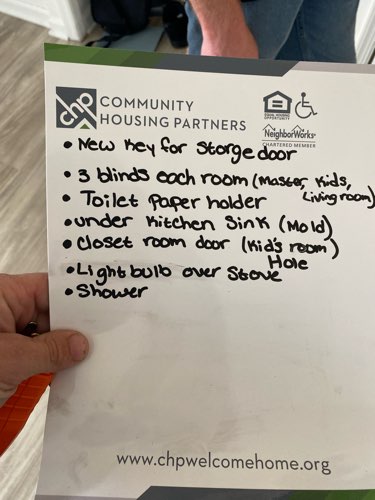 chp COMMUNITY
HOUSING PARTNERS
EQUAL HOUSING
OPPORTUNITY
NeighborWorks®
CHARTERED MEMBER
• New Key for Storge door
• 3 blinds each room (Master, Kids,
Living room)
• Toilet Paper holder
• under Kitchen Sink (Mold)
• Closet room door (Kid's room)
Hole
• Light bulb over Stove
• Shower
www.chpwelcomehome.org